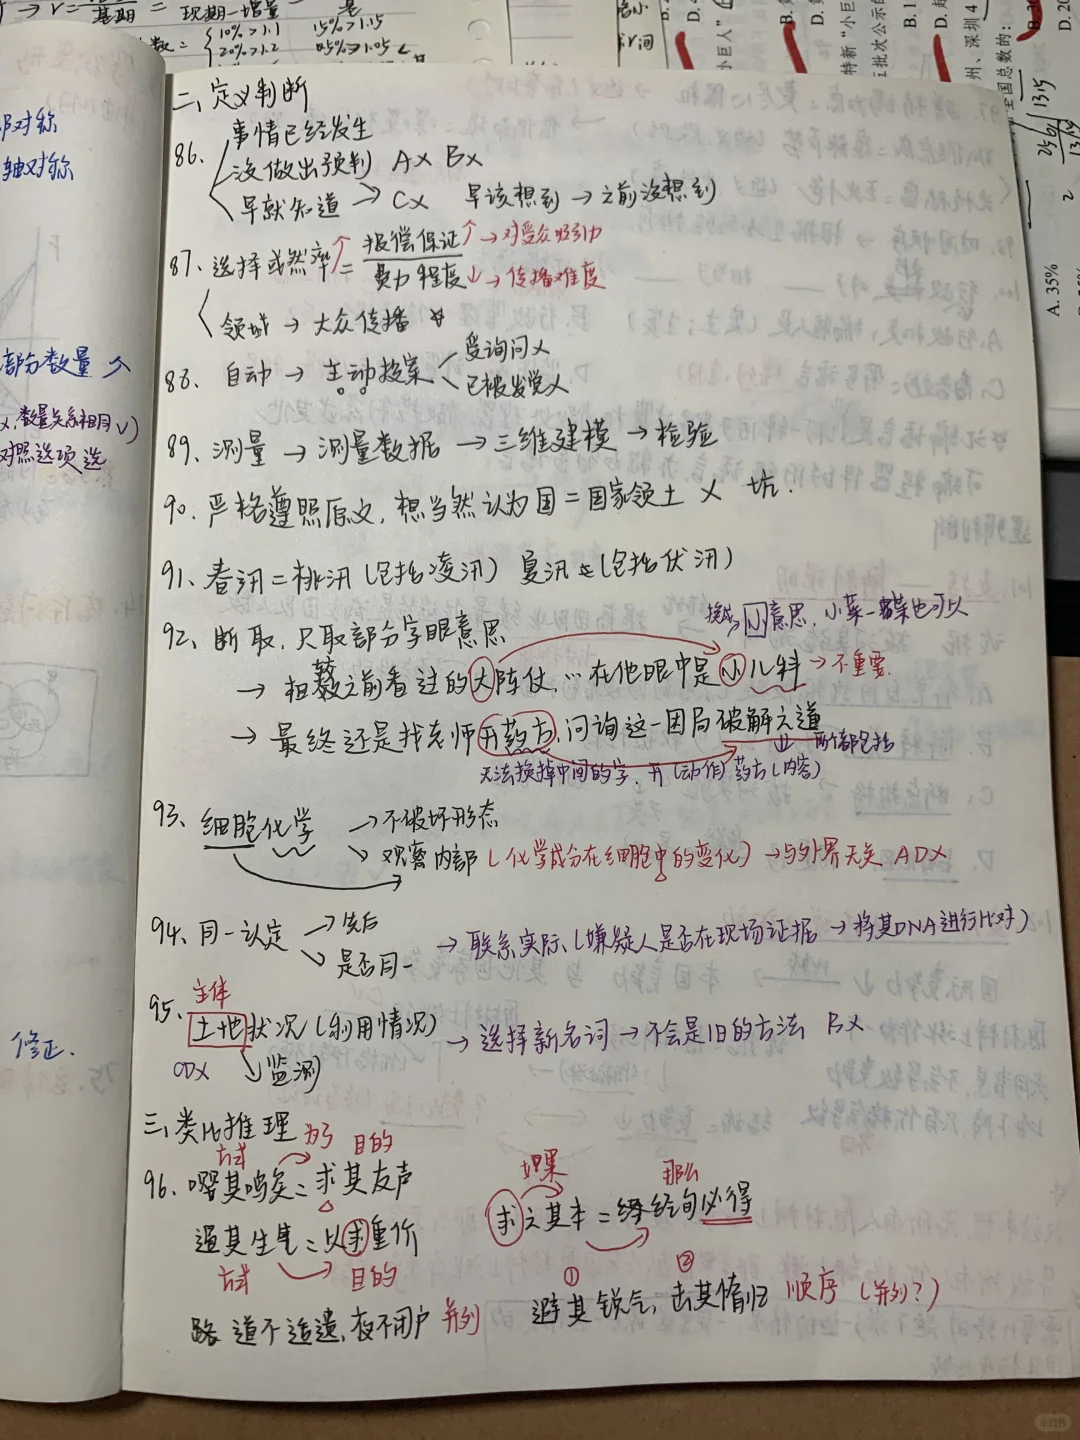 二、定义判断
86、事情已经发生
没做出预判 A× B×
早就知道 → C× 早该想到 → 之前没想到
87、选择或然率↑ = 报偿保证↑ → 对受众吸引力
费力程度↓ → 传播难度
领域 → 大众传播
88、自动 → 主动投案
受询问×
已被发觉×
89、测量 → 测量数据 → 三维建模 → 检验
90、严格遵照原文，想当然认为国=国家领土 × 坑.
91、春汛=桃汛(包括凌汛) 夏汛 (包括伏汛)
92、断取，只取部分字眼意思
换成小意思，小菜一碟也可以
→ 相较之前看过的大阵仗，…在他眼中是小儿科 → 不重要
→ 最终还是找老师开药方，问询这一困局破解之道
两个都包括
无法换掉中间的字，开(动作)药方(内容)
93、细胞化学 → 不破坏形态
↘ 观察内部(化学成分在细胞中的变化) → 与外界无关 AD×
94、同一认定 → 先后
↘ 是否同一
→ 联系实际、(嫌疑人是否在现场证据 → 将其DNA进行比对)
主体
95、土地状况(利用情况) → 选择新名词 → 不会是旧的方法 B×
CD× ↘ 监测
三、类比推理
方式 为了 目的
96、嘤其鸣矣=求其友声
如果 那么
求之其本=经旬必得
逼其生隼=以求重价
方式 目的
① ②
路不拾遗，夜不闭户 并列
避其锐气，击其惰归 顺序 (并列?)
部对称
轴对称
部分数量
数量关系相同√)
对照选项选
修正.
基期
现期-增量
10%→1.1 15%→1.15
20%→1.2
A. 35%
小红书